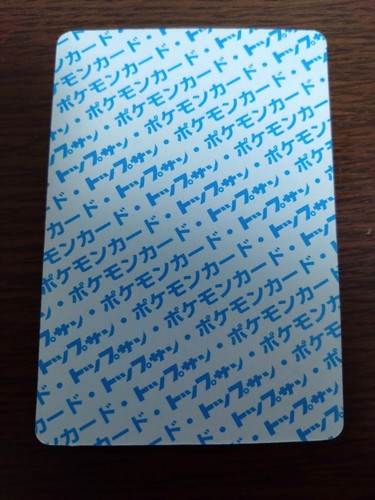 カード・
モンカード・トップサン・
ケモンカード・トップサン・
ポケモンカード・トップサン・
・ポケモンカード・トップサン
サン・ポケモンカード・トップ
トップサン・ポケモンカード・
・トップサン・ポケモンカード
ード・トップサン・ポケモンカード
カード・トップサン・ポケモン
モンカード・トップサン・ポケ
ポケモンカード・トップサン・
・ポケモンカード・トップサン
サン・ポケモンカード・トップ
トップサン・ポケモンカード
・トップサン・ポケモンカード
ード・トップサン・ポケモン
ンカード・トップサン